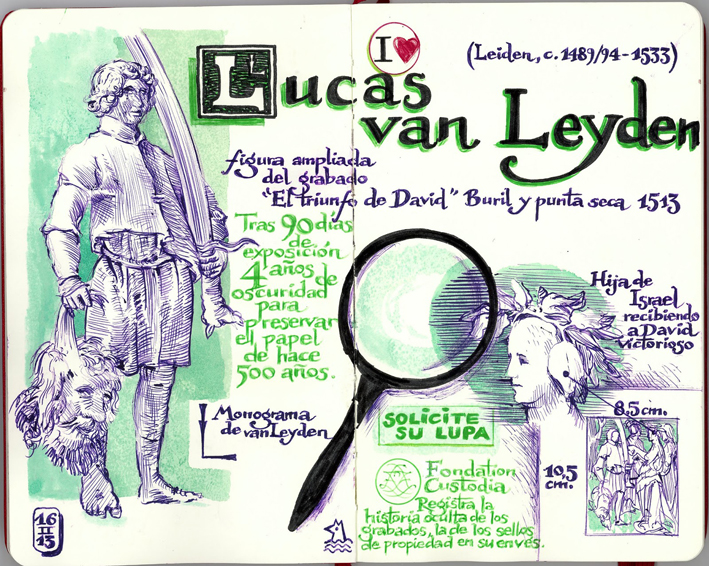 I
(Leiden, c. 1489/94-1533)
Lucas
van Leyden
figura ampliada
del grabado
"El triunfo de David" Buril y punta seca 1513
Tras 90 días
de
exposición
4 años de
oscuridad
para
preservar
el papel
de hace
500 años.
Hija de
Israel
recibiendo
a David
victorioso
Monograma
de van Leyden
L
SOLICITE
SU LUPA
8,5 cm.
10,5
cm.
Fondation
Custodia
Registra la
historia oculta de los
grabados, la de los sellos
de propiedad en su envés.
16
II
13